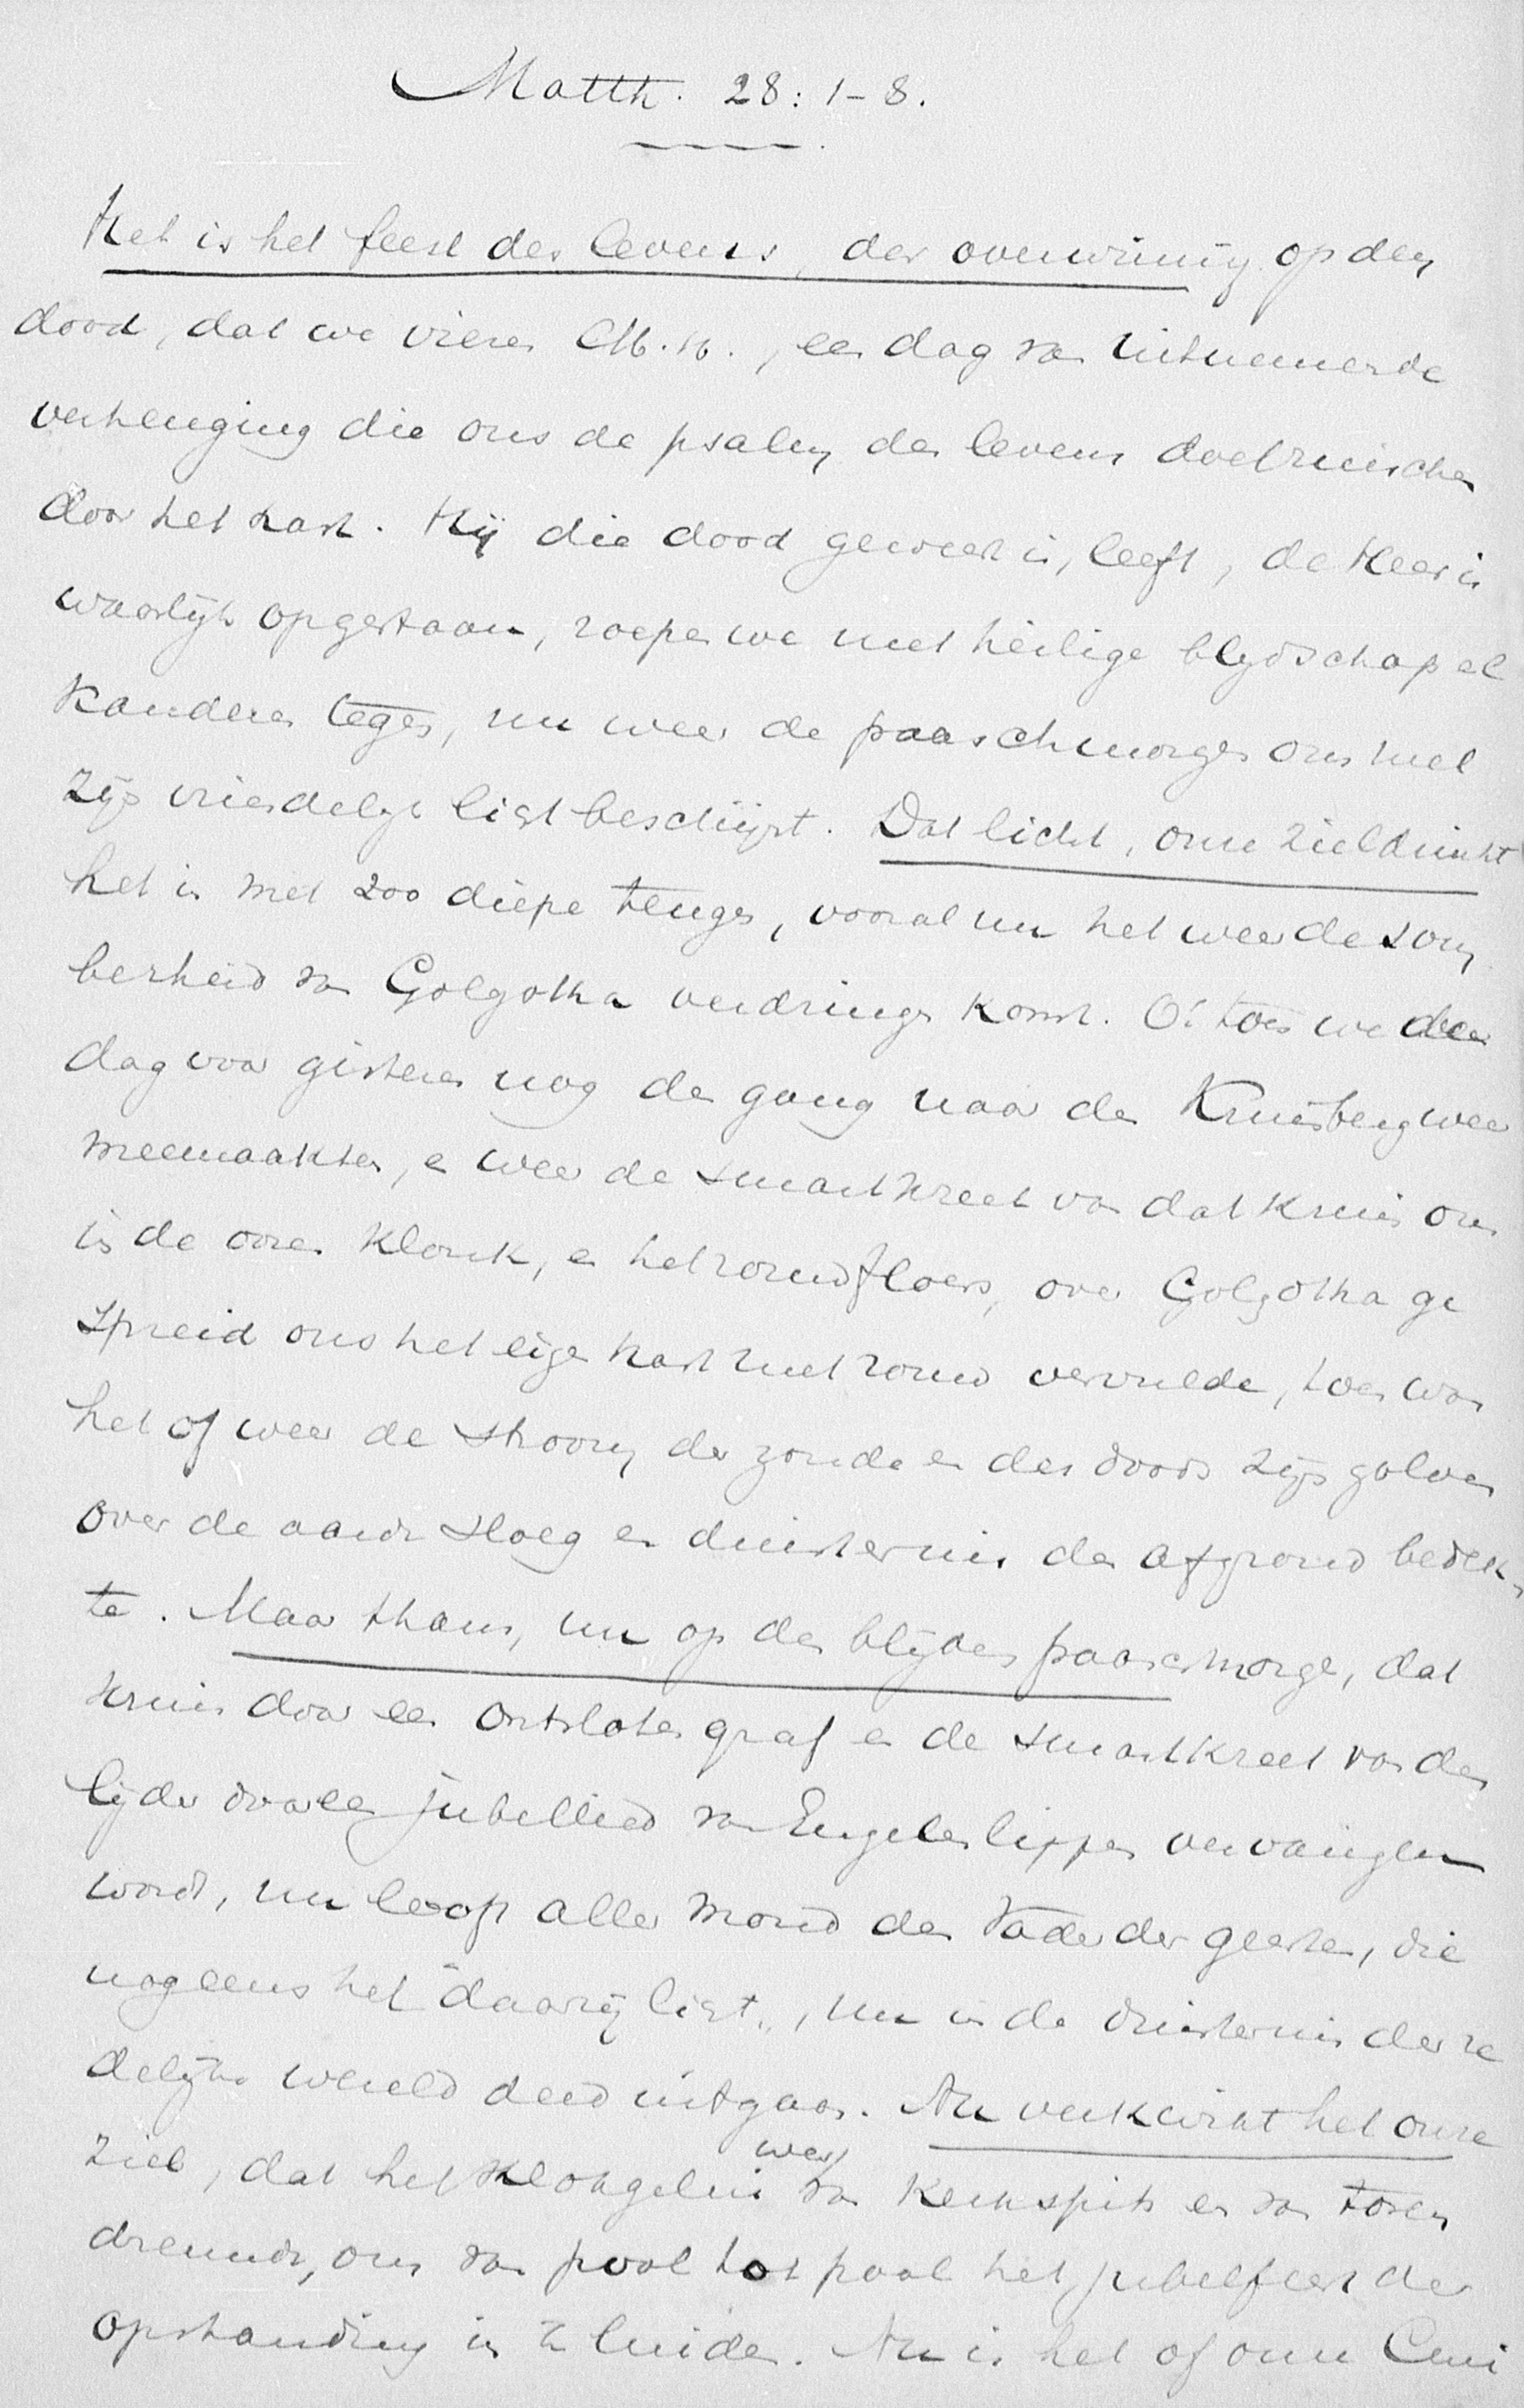 Matth. 28: 1-8.
Het is het feest des levens, der overwinning op den
dood, dat we vieren M.H., een dag van uitnemende
verheuging die ons de psalm des levens doet ruischen
door het hart. Hij die dood geweest is, leeft, de Heer is
waarlijk opgestaan, roepen we met heilige blijdschap el
kanderen tegen, nu weer de paaschmorgen ons met
zijn vriendelijk licht beschijnt. Dat licht, onze ziel drinkt
het in met zoo diepe teugen, vooral nu het weer de som
berheid van Golgotha verdringen komt. O! toen we den
dag voor gisteren nog den gang naar den Kruisberg weer
meemaakten, en weer de smartkreet van dat kruis ons
in de ooren klonk, en het rouwfloers, over Golgotha ge
spreid ons het eigen hart met rouw vervulde, toen was
het of weer de stroom der zonde en des doods zijn golven
over de aarde sloeg en duisternis den afgrond bedek-
te. Maar thans, nu op den blijden paaschmorgen, dat
kruis door een ontsloten graf en de smartkreet van den
lijder door een jubellied van Engelenlippen vervangen
wordt, nu loopt aller mond den Vader der geesten, die
nog eens het "daar zij licht", nu in de duisternis der ze
delijke wereld deed uitgaan. Nu verkwikt het onze
ziel, dat het klokgelui weer van kerkspits en van toren
dreunde, om van pool tot pool het jubelfeest der
opstanding in te luiden. Nu is het of onze